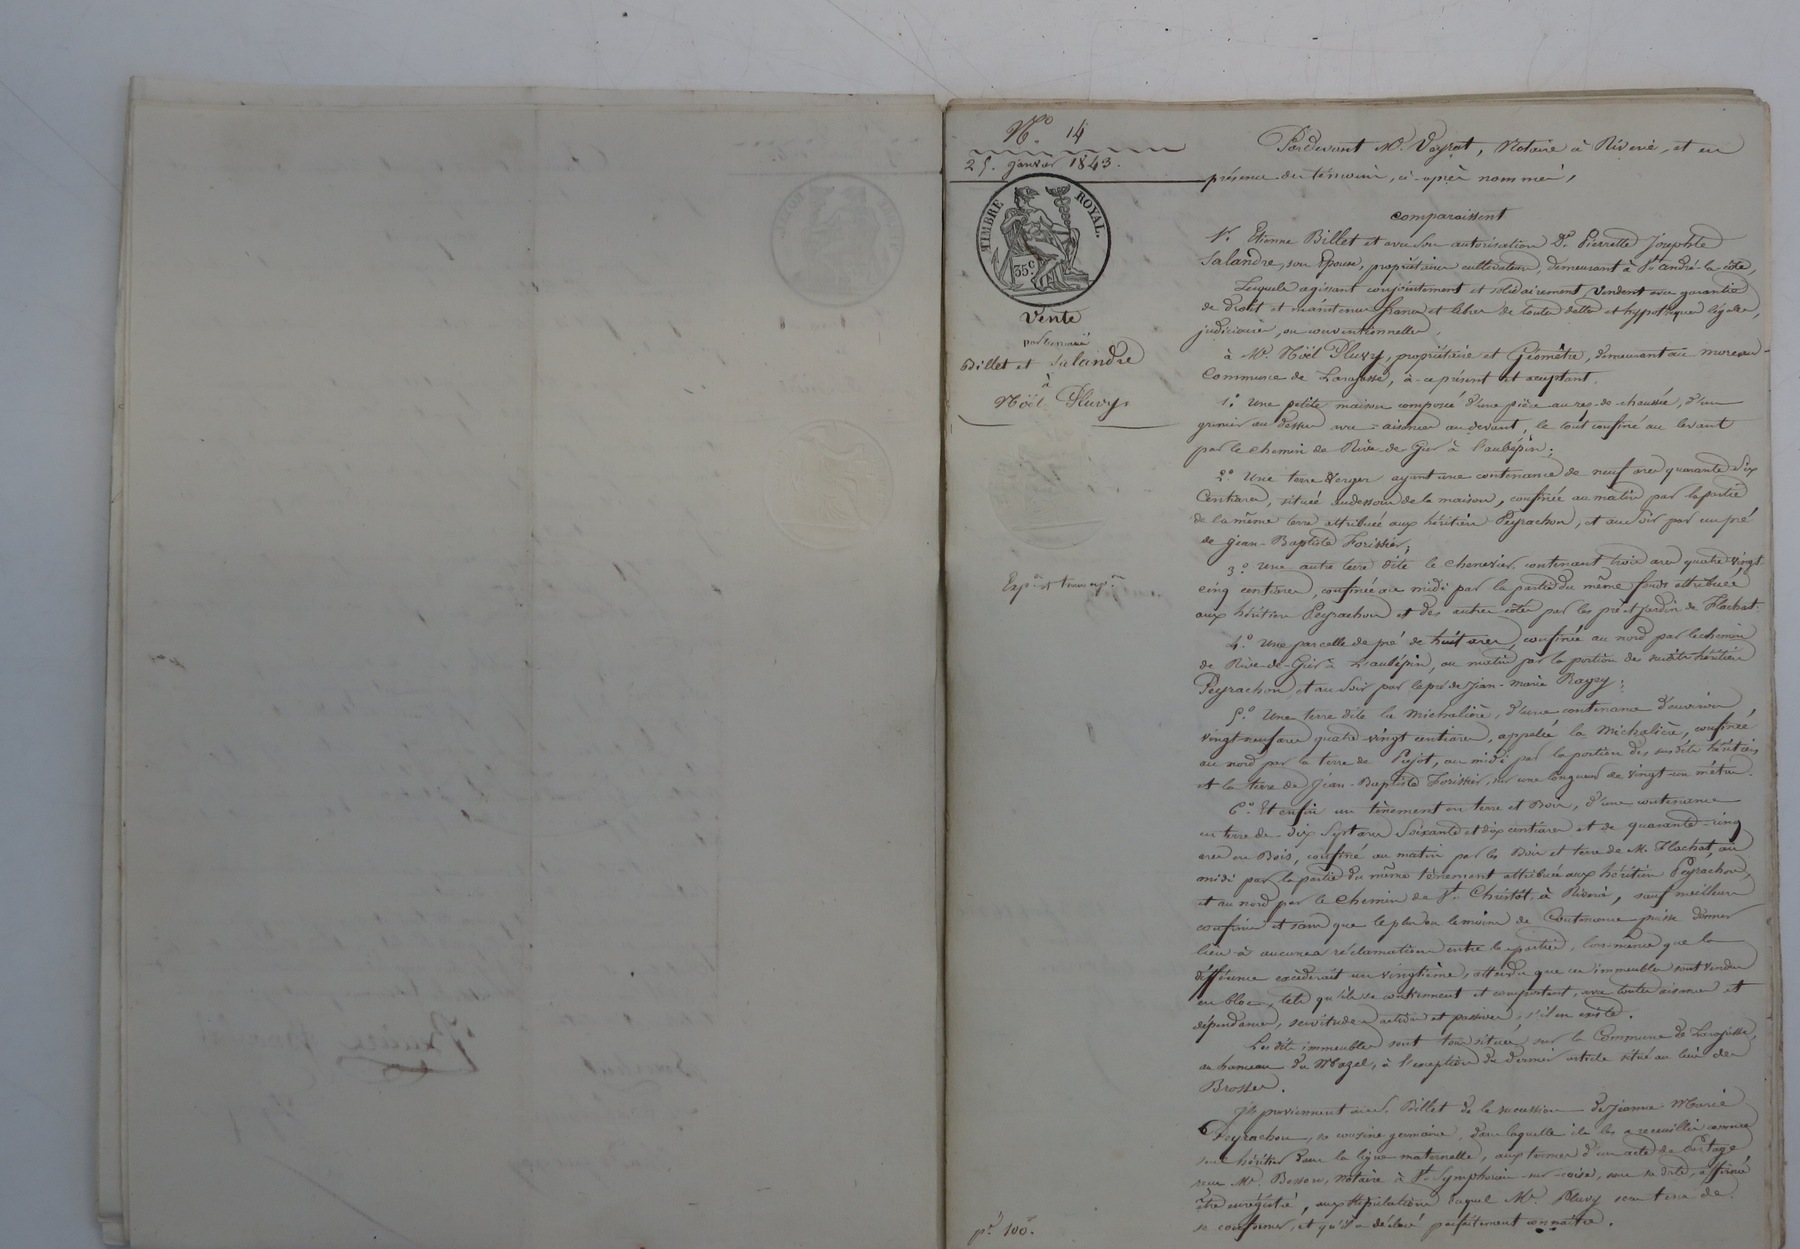 N.o 14
25. janvier 1843.
TIMBRE ROYAL.
35c
Vente
par les mariés
Billet et Salandre
à
Nöel Pluvy.
Expon et transcpon
pr. 100f.
Pardevant Me. Veyrat, Notaire à Riverie, et en
présence des témoins, ci-après nommés,
comparaissent
1o. Etienne Billet et avec son autorisation De. Pierrette Josephte
Salandre, son Epouse, propriétaires cultivateurs, demeurant à St. andré-la-côte,
Lesquels agissant conjointement et solidairement, vendent avec garantie
de droit et maintenue franc et libres de toutes dettes et hypothèques légales,
judiciaires, ou conventionnelles,
à Mr. Nöel Pluvy, propriétaire et Géomètre, demeurant au moreau
Commune de Larajasse, à-ce présent et acceptant.
1o. Une petite maison composée d'une pièce au rez-de-chaussée, d'un
grenier au dessus avec aisances au devant, le tout confiné au levant
par le chemin de Rive-de-Gier à l'aubépin;
2o. Une terre Verger ayant une contenance de neuf ares quarante six
Centiares, située audessous de la maison, confinée au matin par la partie
de la même terre attribuée aux héritiers Peyrachon, et au soir par un pré
de Jean-Baptiste Forissier;
3o. Une autre terre dite le chenevier, contenant trois ares quatre vingt
cinq centiares, confinée au midi par la partie du même fonds attribuée
aux héritiers Peyrachon et des autres côtés par les pré et jardin de Flachat.
4o. Une parcelle de pré de huit ares, confinée au nord par le chemin
de Rive-de-Gier à L'aubépin, au matin par la portion des susdits héritiers
Peyrachon, et au soir par le pré de Jean-Marie Ragey;
5o. Une terre dite la Michalière, d'une contenance d'environ
vingt-neuf ares quatre-vingt centiares, appelée la Michalière, confinée
au nord par la terre de Pujot, au midi par la portion des susdits héritiers
et la terre de Jean-Baptiste Forissier, sur une longueur de vingt-un mètres.
6o. Et enfin un tènement en terre et Bois, d'une contenance
en terre de dix sept ares soixante et dix centiares et de quarante-cinq
ares en Bois, confiné au matin par les Bois et terre de M. Flachat, au
midi par la partie du même tènement attribuée aux héritiers Peyrachon,
et au nord par le Chemin de St. Christôt à Riverie, sauf meilleurs
confins et sans que le plus ou le moins de Contenance puisse donner
lieu à aucunes réclamations entre les parties, lors même que la
différence excéderait un vingtième, attendu que ces immeubles sont vendus
en bloc, tels qu'ils se contiennent et comportent, avec toutes aisances et
dépendances, servitudes actives et passives, s'il en existe.
Lesdits immeubles sont tous situés sur la Commune de Larajasse,
au hameau du Mazel, à l'exception du dernier article situé au lieu des
Brosses.
Ils proviennent aud. Billet de la succession de Jeanne Marie
Peyrachon, sa cousine germaine, dans laquelle il les a recueillis comme
seul héritier dans la ligne maternelle, aux termes d'un acte de Partage
reçu Me. Besson, notaire à St. Symphorien-sur-coise, sous sa date, affirmé
être enrégistré, aux stipulations duquel Mr. Pluvy sera tenu de
se conformer, et qu'il a déclaré parfaitement connaître.